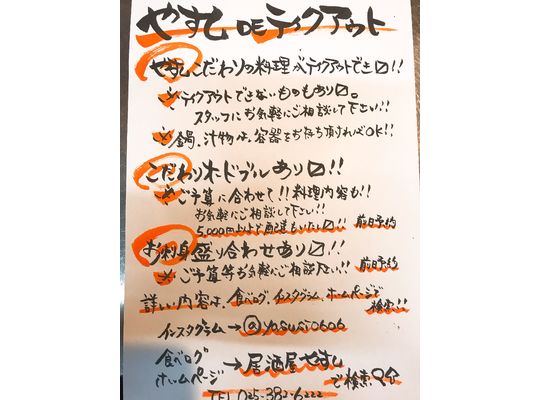 やすし DE テイクアウト
やすしこだわりの料理がテイクアウトでき〼!!
※テイクアウトできないものもあり〼。
スタッフにお気軽にご相談して下さい!!
※鍋、汁物は、容器をお持ち頂ければOK!!
こだわりオードブルあり〼!!
※ご予算に合わせて!!料理内容も!!
お気軽にご相談して下さい!!
5,000円以上で配達もいたし〼!! 前日予約
お刺身盛り合わせあり〼!!
※ご予算等お気軽にご相談下さい!! 前日予約
詳しい内容は、食べログ、インスタグラム、ホームページで
検索!!
インスタグラム→@yasusi0606
食べログ
ホームページ
→居酒屋やすし
で検索
TEL 025-382-6222